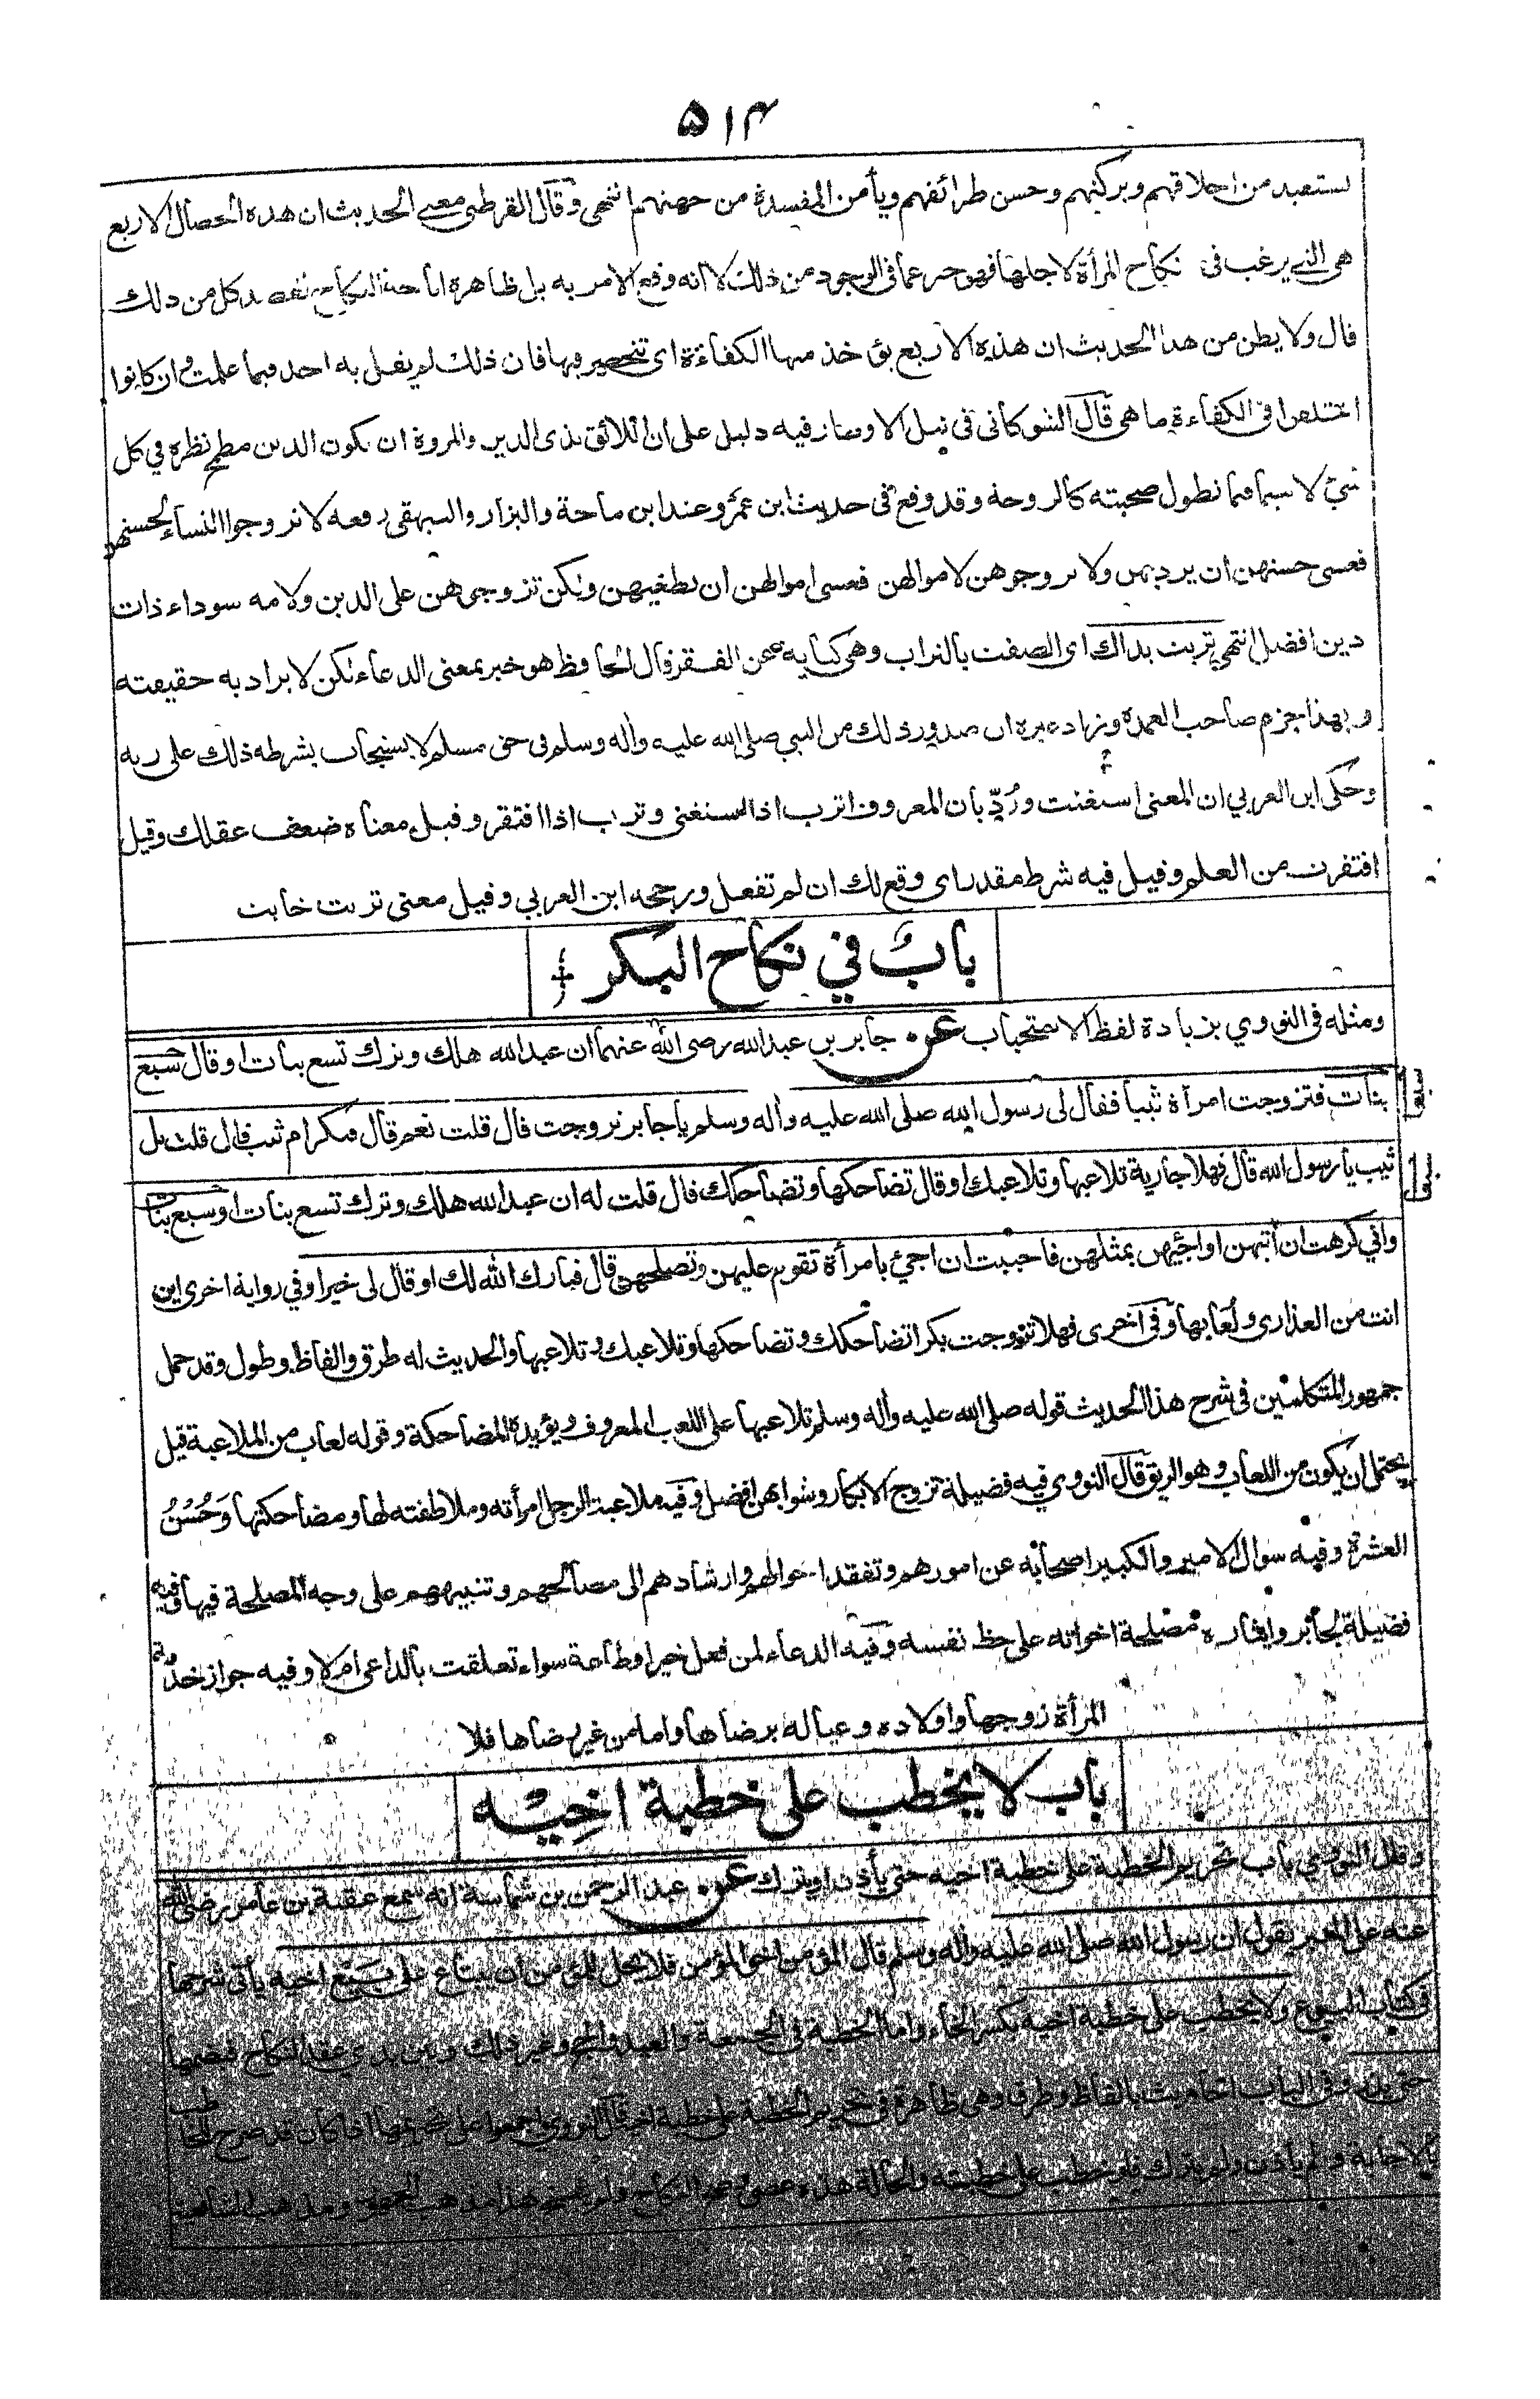 ۵۱۴
يستفيد من اخلاقهم وبركتهم وحسن طرائفهم ويأمن المفسدة من جهتهم انتهى وقال القرطبى معنى الحديث ان هذه الخصال الاربع
هى التى يرغب فى نكاح المرأة لاجلها فهو خبر عما فى الوجود من ذلك لا انه وقع الامر به بل ظاهره اباحة النكاح لقصد كل من ذلك
قال ولا يظن من هذا الحديث ان هذه الاربع يؤخذ منها الكفاءة اى تنحصر فيها فان ذلك لم يقل به احد فيما علمت وان كانوا
اختلفوا فى الكفاءة ما هى قال الشوكانى فى نيل الاوطار فيه دليل على ان اللائق بذى الدين والمروة ان يكون الدين مطمح نظره في كل
شئ لا سيما فيما تطول صحبته كالزوجة وقد وقع فى حديث ابن عمرو عند ابن ماجة والبزار والبيهقى رفعه لا تزوجوا النساء لحسنهن
فعسى حسنهن ان يرديهن ولا تزوجوهن لاموالهن فعسى اموالهن ان تطغيهن ولكن تزوجوهن على الدين ولامة سوداء ذات
دين افضل انتهى تربت يداك اى لصقت بالتراب وهى كناية عن الفقر قال الحافظ هو خبر بمعنى الدعاء لكن لا يراد به حقيقته
وبهذا جزم صاحب العمدة وزاد غيره ان صدور ذلك من النبي صلى الله عليه وأله وسلم فى حق مسلم لا يستجاب بشرطه ذلك على ربه
وحكى ابن العربي ان المعنى استغنت ورُدّ بأن المعروف اترب اذا استغنى وترب اذا افتقر وقيل معناه ضعف عقلك وقيل
افتقرت من العلم وقيل فيه شرط مقدر اى وقع لك ان لم تفعل ورجحه ابن العربي وقيل معنى تربت خابت
باب في نكاح البكر
ومثله فى النووي بزيادة لفظ الاستحباب عن جابر بن عبد الله رضى الله عنهما ان عبد الله هلك وترك تسع بنات او قال سبع
بنات فتزوجت امرأة ثيبا فقال لى رسول الله صلى الله عليه وأله وسلم يا جابر تزوجت قال قلت نعم قال فبكر ام ثيب قال قلت بل
ثيب يا رسول الله قال فهلا جارية تلاعبها وتلاعبك او قال تضاحكها وتضاحكك قال قلت له ان عبد الله هلك وترك تسع بنات او سبع بنات
وانى كرهت ان أتيهن او اجيئهن بمثلهن فاحببت ان اجئ بامرأة تقوم عليهن وتصلحهن قال فبارك الله لك او قال لى خيرا وفي رواية اخرى اين
انت من العذارى ولُعابها وفى اخرى فهلا تزوجت بكرا تضاحكك وتضاحكها وتلاعبك وتلاعبها والحديث له طرق والفاظ وطول وقد حمل
جمهور المتكلمين فى شرح هذا الحديث قوله صلى الله عليه وأله وسلم تلاعبها على اللعب المعروف ويؤيده المضاحكة وقوله لعاب من الملاعبة قيل
يحتمل ان يكون من اللعاب وهو الريق قال النووي فيه فضيلة تزوج الابكار وثوابهن افضل وفيه ملاعبة الرجل امرأته وملاطفته لها ومضاحكتها وَحُسْنُ
العشرة وفيه سوال الامير والكبير اصحابه عن امورهم وتفقد احوالهم وارشادهم الى مصالحهم وتنبيههم على وجه المصلحة فيها وفيه
فضيلة لجابر وايثاره مصلحة اخواته على حظ نفسه وفيه الدعاء لمن فعل خيرا وطاعة سواء تعلقت بالداعى ام لا وفيه جواز خدمة
المرأة زوجها واولاده وعياله برضاها واما من غير رضاها فلا
باب لا يخطب على خطبة اخِيْهِ
وقال النووي باب تحريم الخطبة على خطبة اخيه حتى يأذن او يترك عن عبد الرحمن بن شماسة انه سمع عقبة بن عامر رضى الله
عنه على المنبر يقول ان رسول الله صلى الله عليه وأله وسلم قال المؤمن اخو المؤمن فلا يحل للمؤمن ان يبتاع على بيع اخيه يأتى شرحها
فى كتاب البيوع ولا يخطب على خطبة اخيه بكسر الخاء واما الخطبة فى الجمعة والعيد والحج وغير ذلك وبين يدي عقد النكاح فبضمها
حتى يذر وفى الباب احاديث بالفاظ وطرق وهى ظاهرة فى تحريم الخطبة على خطبة اخيه قال النووي اجمعوا على تحريمها اذا كان قد صرح للخاطب
بالاجابة ولم يأذن ولم يترك فلو خطب على خطبته والحالة هذه عصى وصح النكاح ولم يفسخ هذا مذهب الجمهور ومذهب الشافعية